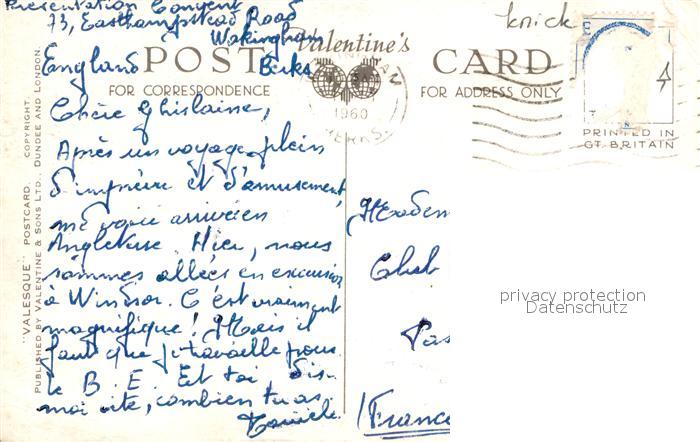 Presentation Convent
73, Easthampstead Road
Wokingham
England Berks
knick
POST CARD
Valentine's
FOR CORRESPONDENCE
FOR ADDRESS ONLY
1960
BERKS.
PRINTED IN
GT. BRITAIN
"VALESQUE" POSTCARD. COPYRIGHT.
PUBLISHED BY VALENTINE & SONS LTD., DUNDEE AND LONDON.
Chère Ghislaine,
Après un voyage plein
d'imprévu et d'amusement,
me voici arrivée en
Angleterre. Hier, nous
sommes allées en excursion
à Windsor. C'est vraiment
magnifique! Mais il
faut que je travaille pour
le B.E. Et toi, dis-
moi vite, combien tu as.
France
privacy protection
Datenschutz